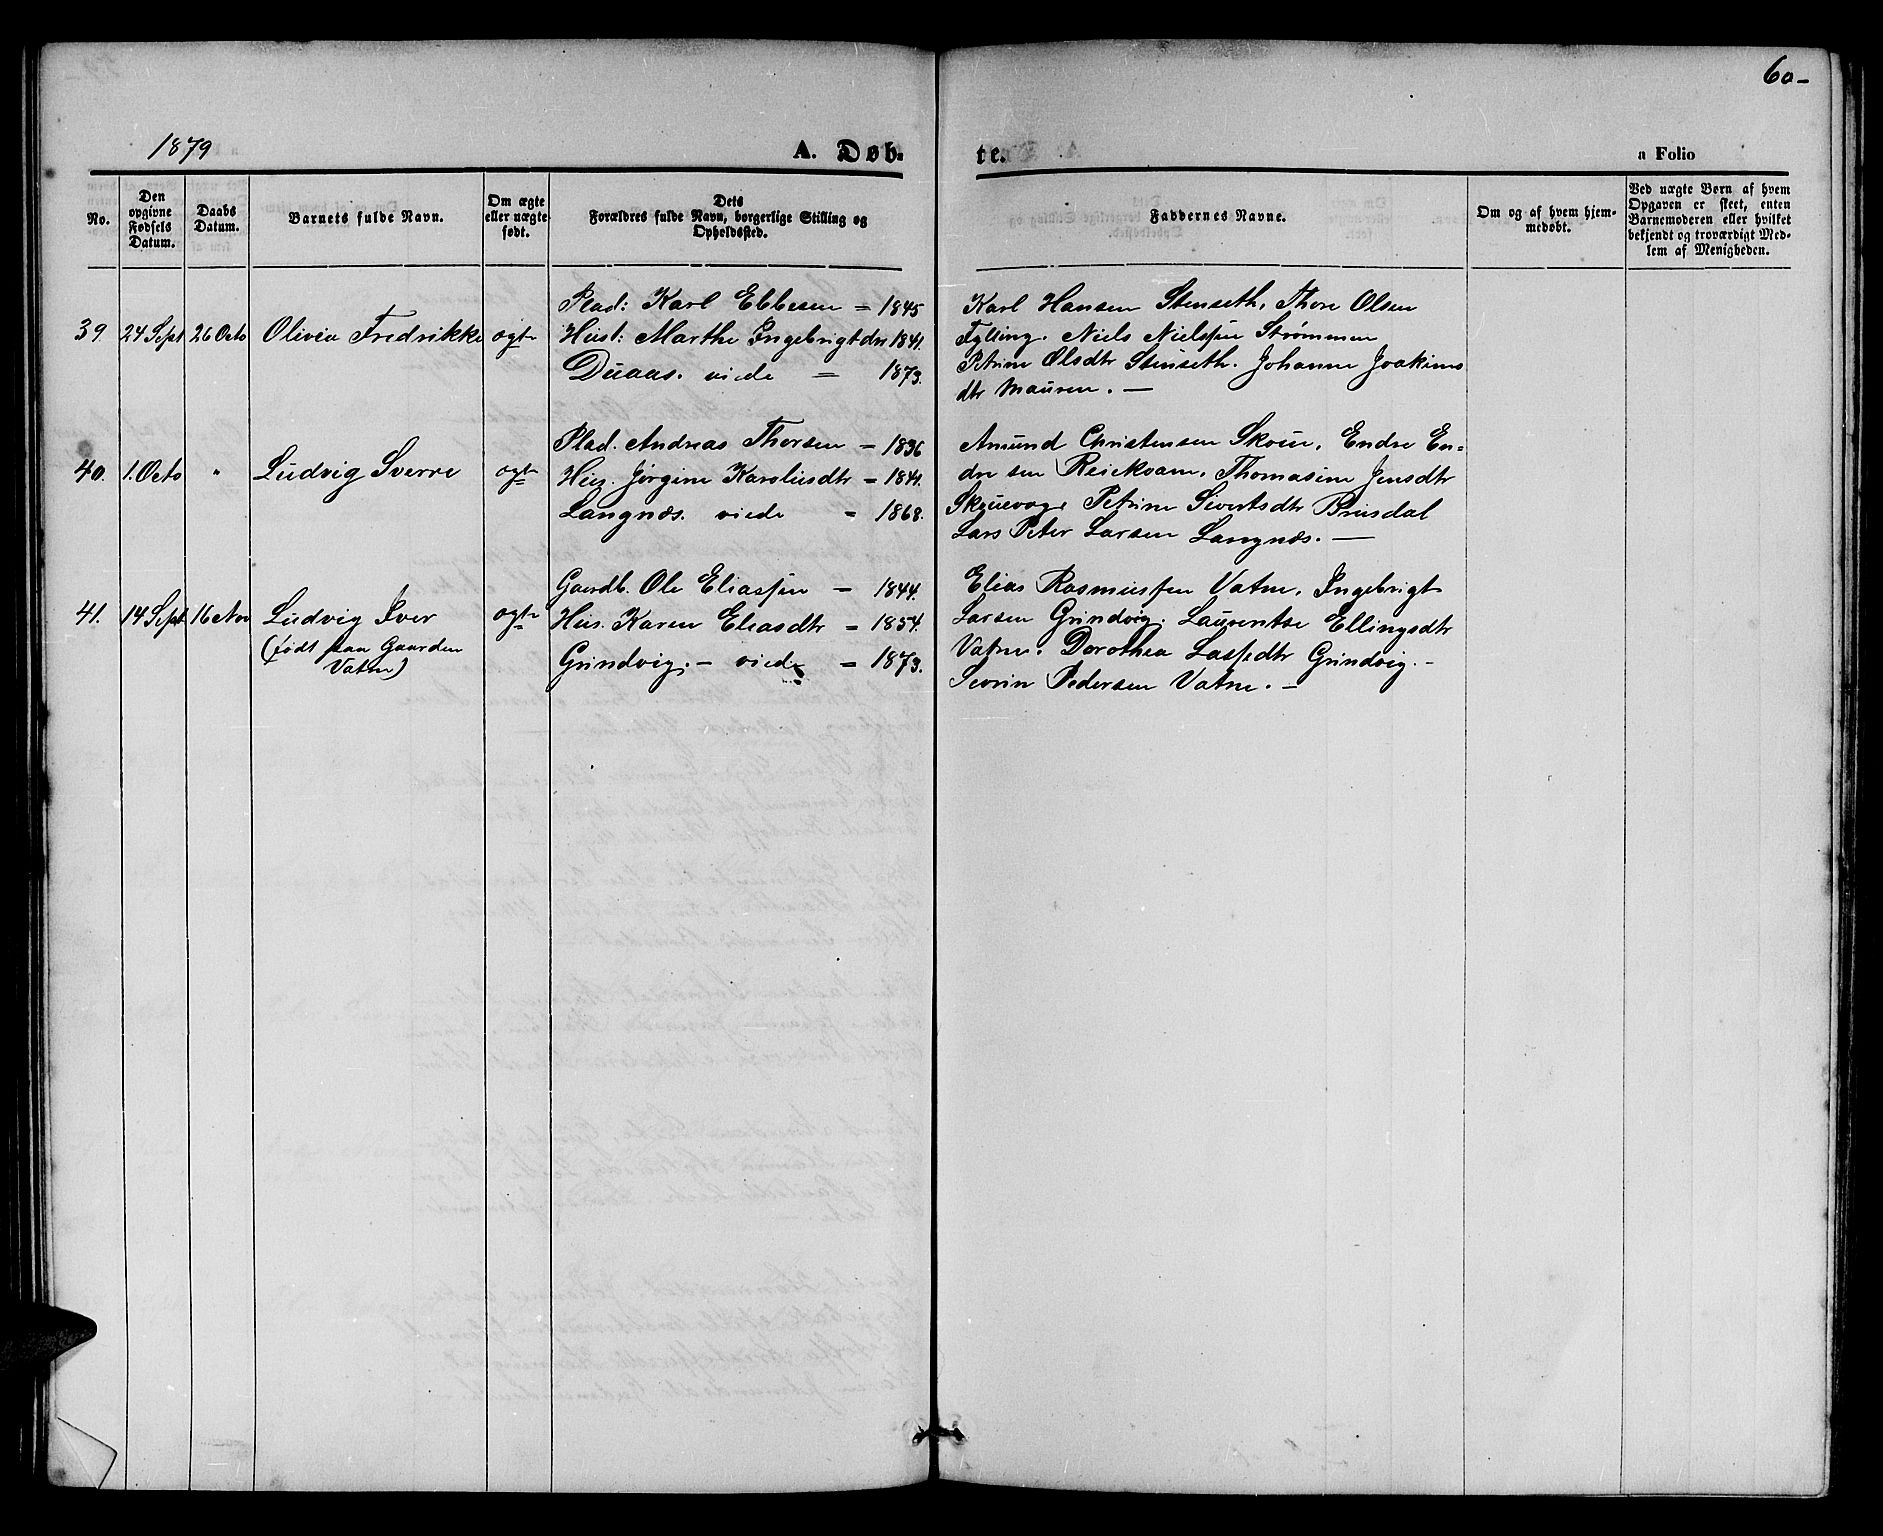 60-
1879
A. Døb-
te.
a Folio
No.
Den
opgivne
Fødsels
Datum.
Daabs
Datum.
Barnets fulde Navn.
Om ægte
eller uægte
født.
Dets
Forældres fulde Navn, borgerlige Stilling og
Opholdssted.
Faddernes Navne.
Om og af hvem hjem-
medøbt.
Ved uægte Børn af hvem
Opgaven er skeet, enten
Barnemoderen eller hvilket
bekjendt og troværdigt Med-
lem af Menigheden.
39 24 Sept 26 Octo Olivia Fredrikke ægte
Plad: Karl Ebbesen = 1845
Hust: Marthe Ingebrigtdtr 1841.
Duaas. viede = 1873.
Karl Hansen Stenseth, Thore Olsen
Fylling. Niels Nielssen Strømmen
Petrine Olsdtr Stenseth. Johanne Joakims
dtr Mauren. —
40. 1. Octo " Ludvig Sverre ægte
Plad. Andreas Thorsen = 1836
Hus. Jørgine Karoliusdtr = 1841.
Langnæs. viede = 1868.
Amund Christensen Skoue, Endre En=
dresen Reiekvam, Thomasine Jensdtr
Petrine Sivertsdtr Brusdal
Lars Peter Larsen Langnæs. —
41. 14 Sept 16 Nov Ludvig Iver
(født paa Gaarden
Vatne)
ægte
Gaardb. Ole Eliassen = 1844.
Hus. Karen Eliasdtr = 1854.
Grindvig. — viede = 1873.
Elias Rasmussen Vatne, Ingebrigt
Larsen Grindvig. Laurentse Ellingsdtr
Vatne. Dorothea Lassedtr Grindvig. -
Sevrin Pedersen Vatne. —